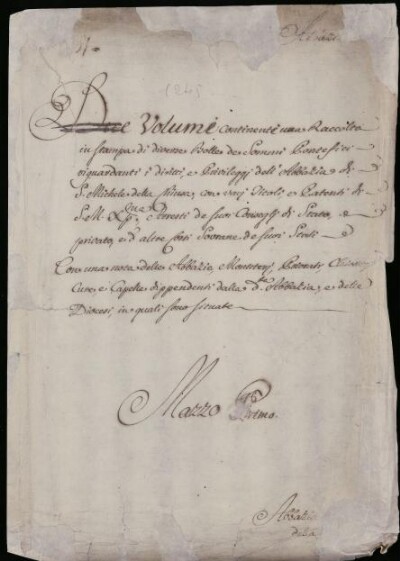 1245
Due Volumi continenti una Raccolta
in stampa di diverse Bolle de Sommi Pontefici
riguardanti i diritti, e Privileggi dell'Abbazia di
S. Michele della Chiusa, con varj Titoli, e Patenti di
S. M. e Arresti de suoi Consegli di Stato, e
privato, e d'altre Corti Sovrane de suoi Stati
Con una nota delle Abbazie, Monisterj, Priorati
Cure, e Capelle dippendenti dalla d.ta Abbazia, e delle
Diocesi, in quali sono situate
Mazzo Primo.
Abbazia
della